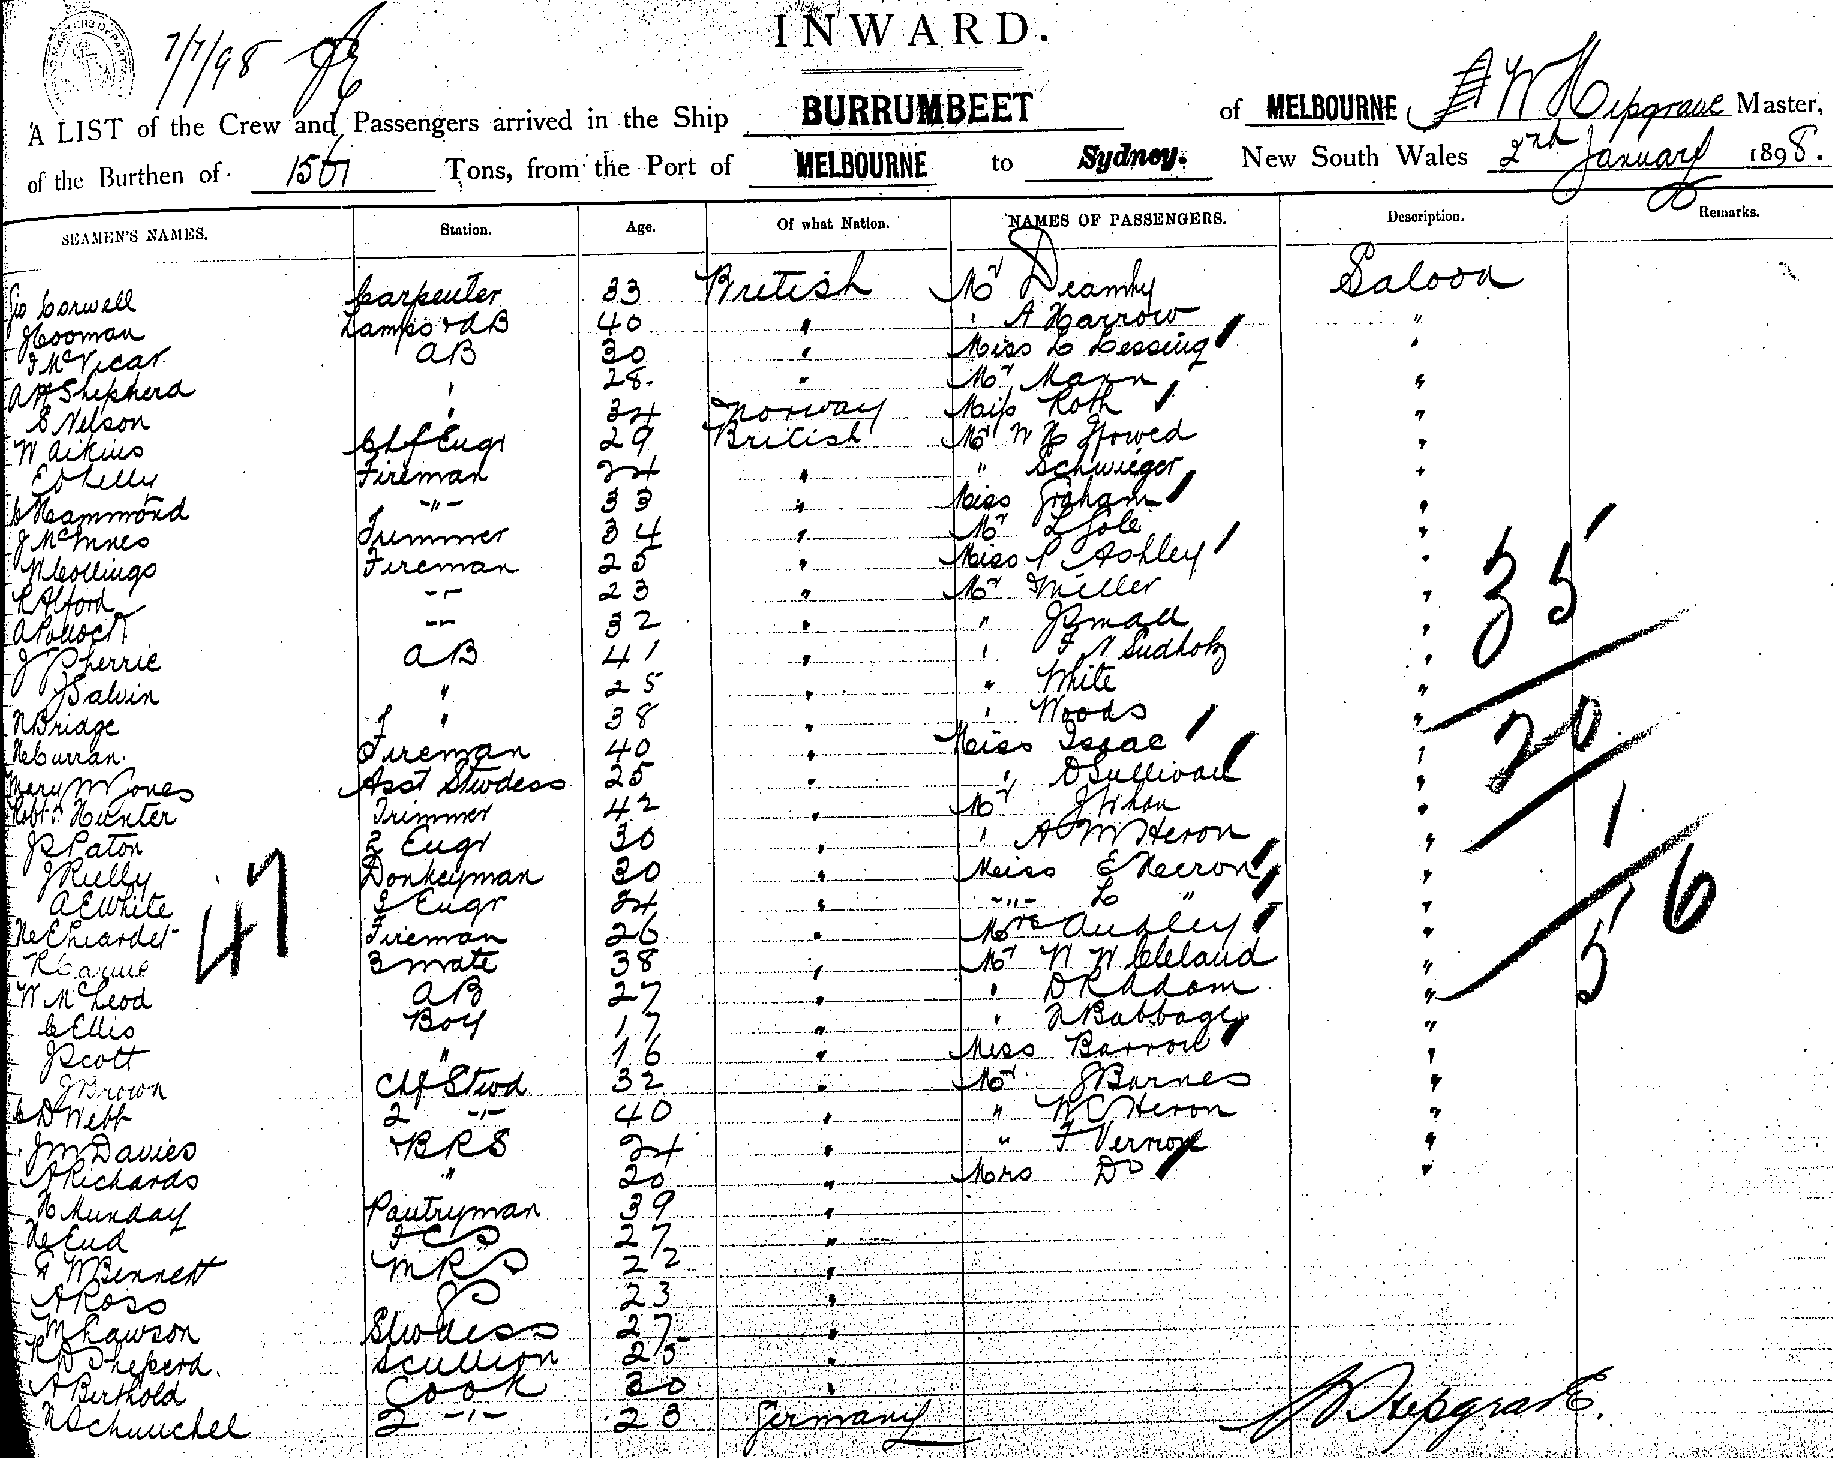 INWARD.
7/7/98
A LIST of the Crew and Passengers arrived in the Ship BURRUMBEET of MELBOURNE W Hipgrave Master,
of the Burthen of Tons, from the Port of MELBOURNE to Sydney. New South Wales 2nd January 1898.
SEAMEN'S NAMES. Station. Age. Of what Nation. NAMES OF PASSENGERS. Description. Remarks.
Carpenter 33 British Mr Saloon
Lamps & AB 40 " " A Harrow "
J McVicar AB 30 " Miss L Lessing "
A H Shepherd " 28. " Mr Mann "
S Nelson " 34 Norway Miss Roth "
W Aikins Chf Engr 29 British Mr "
Fireman 24 " " Schwieger "
C Hammond -"- 33 " Miss Graham "
J McInnes Trimmer 34 " Mr L Cole "
N Collings Fireman 25 " Miss P Ashley "
R Alford -- 23 " Mr Miller "
A Pollock -- 32 " " "
J Pherrie AB 41 " " "
J Salvin " 25 " " White "
N Bridge " 38 " " Woods "
Curran. Fireman 40 " Miss Isaac "
Mary M Jones Asst Stwdess 25 " " O'Sullivan "
Robt Hunter Trimmer 42 " Mr "
J P Paton 2 Engr 30 " " A M Heron "
J Reilly Donkeyman 30 " Miss E Heron "
A E White 3 Engr 24 " -"- L " "
Fireman 26 " Mrs Aubley "
3 mate 38 " Mr W W Cleland "
W McLeod AB 27 " " D R Adam "
C Ellis Boy 17 " " N Babbage "
J Scott " 16 " Miss "
J Brown Chf Stwd 32 " Mr J Barnes "
C D Webb 2 -"- 40 " " W C Heron "
J M Davies BRS 24 " " F Vernon "
A Richards " 20 " Mrs Do "
H Munday Pantryman 39 "
27 "
W Bennett MRS 22 "
A Ross 23 "
M Lawson Stwdess 27 "
Sheperd. Scullion 25 "
A Berthold Cook 30 "
2 -"- 28 Germany
47
35
20
1
56
5
W Hipgrave.